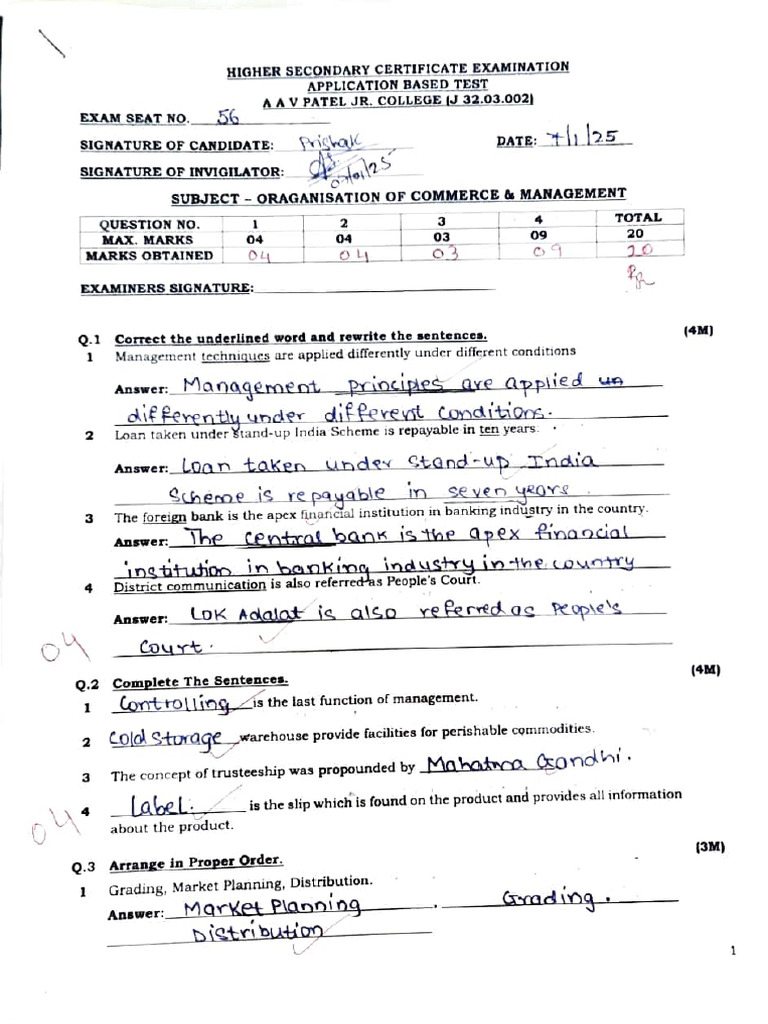 HIGHER SECONDARY CERTIFICATE EXAMINATION
APPLICATION BASED TEST
A A V PATEL JR. COLLEGE (J 32.03.002)
EXAM SEAT NO. 56
SIGNATURE OF CANDIDATE: Prishak DATE: 7/1/25
SIGNATURE OF INVIGILATOR: 07/01/25
SUBJECT – ORAGANISATION OF COMMERCE & MANAGEMENT
QUESTION NO. 1 2 3 4 TOTAL
MAX. MARKS 04 04 03 09 20
MARKS OBTAINED 04 04 03 09 20
EXAMINERS SIGNATURE:
Q.1 Correct the underlined word and rewrite the sentences. (4M)
1 Management techniques are applied differently under different conditions
Answer: Management principles are applied
differently under different conditions.
2 Loan taken under Stand-up India Scheme is repayable in ten years.
Answer: Loan taken under Stand-up India
Scheme is repayable in seven years.
3 The foreign bank is the apex financial institution in banking industry in the country.
Answer: The central bank is the apex financial
institution in banking industry in the country
4 District communication is also referred as People's Court.
Answer: LOK Adalat is also referred as People's
Court.
04
Q.2 Complete The Sentences. (4M)
1 Controlling is the last function of management.
2 Cold Storage warehouse provide facilities for perishable commodities.
3 The concept of trusteeship was propounded by Mahatma Gandhi.
4 Label. is the slip which is found on the product and provides all information
about the product.
04
Q.3 Arrange in Proper Order. (3M)
1 Grading, Market Planning, Distribution.
Answer: Market Planning . Grading.
Distribution
1